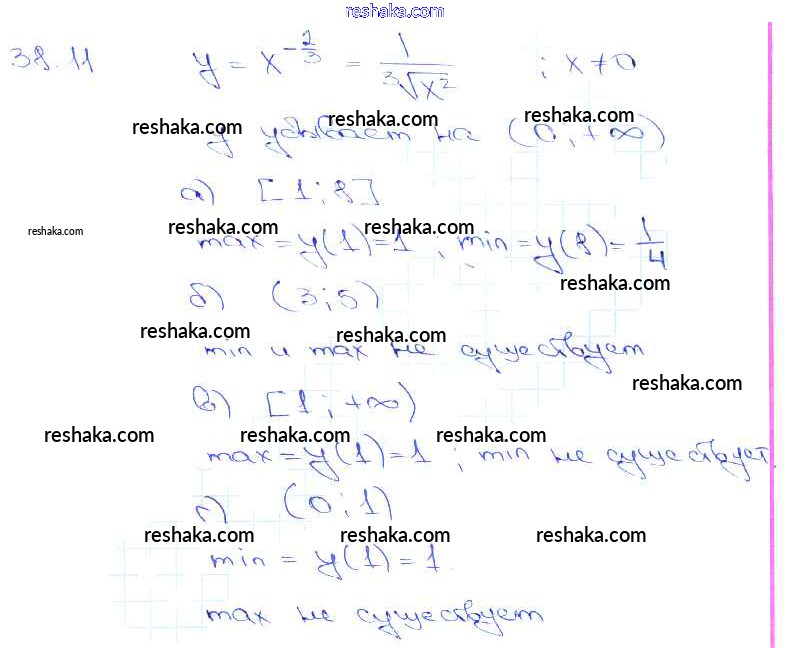 reshaka.com
38.11 y = x^{-2/3} = 1/∛x² ; x ≠ 0
reshaka.com reshaka.com reshaka.com
y убывает на (0; +∞)
а) [1; 8]
reshaka.com reshaka.com reshaka.com
max = y(1) = 1, min = y(8) = 1/4
reshaka.com
б) (3; 5)
reshaka.com reshaka.com
min и max не существует
reshaka.com
в) [1; +∞)
reshaka.com reshaka.com reshaka.com
max = y(1) = 1; min не существует.
г) (0; 1)
reshaka.com reshaka.com reshaka.com
min = y(1) = 1.
max не существует